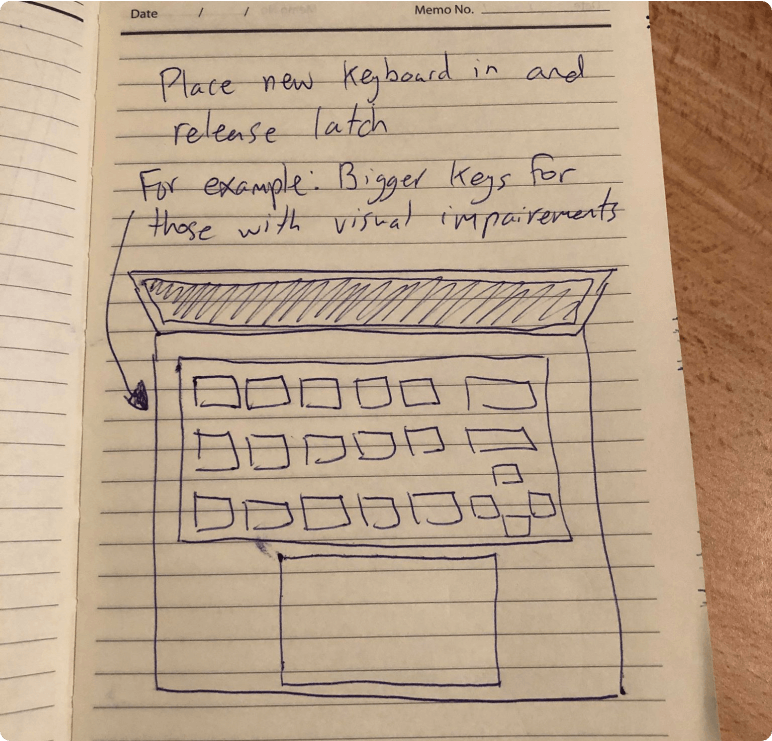 Date / / Memo No.
Place new keyboard in and
release latch
For example: Bigger keys for
those with visual impairements